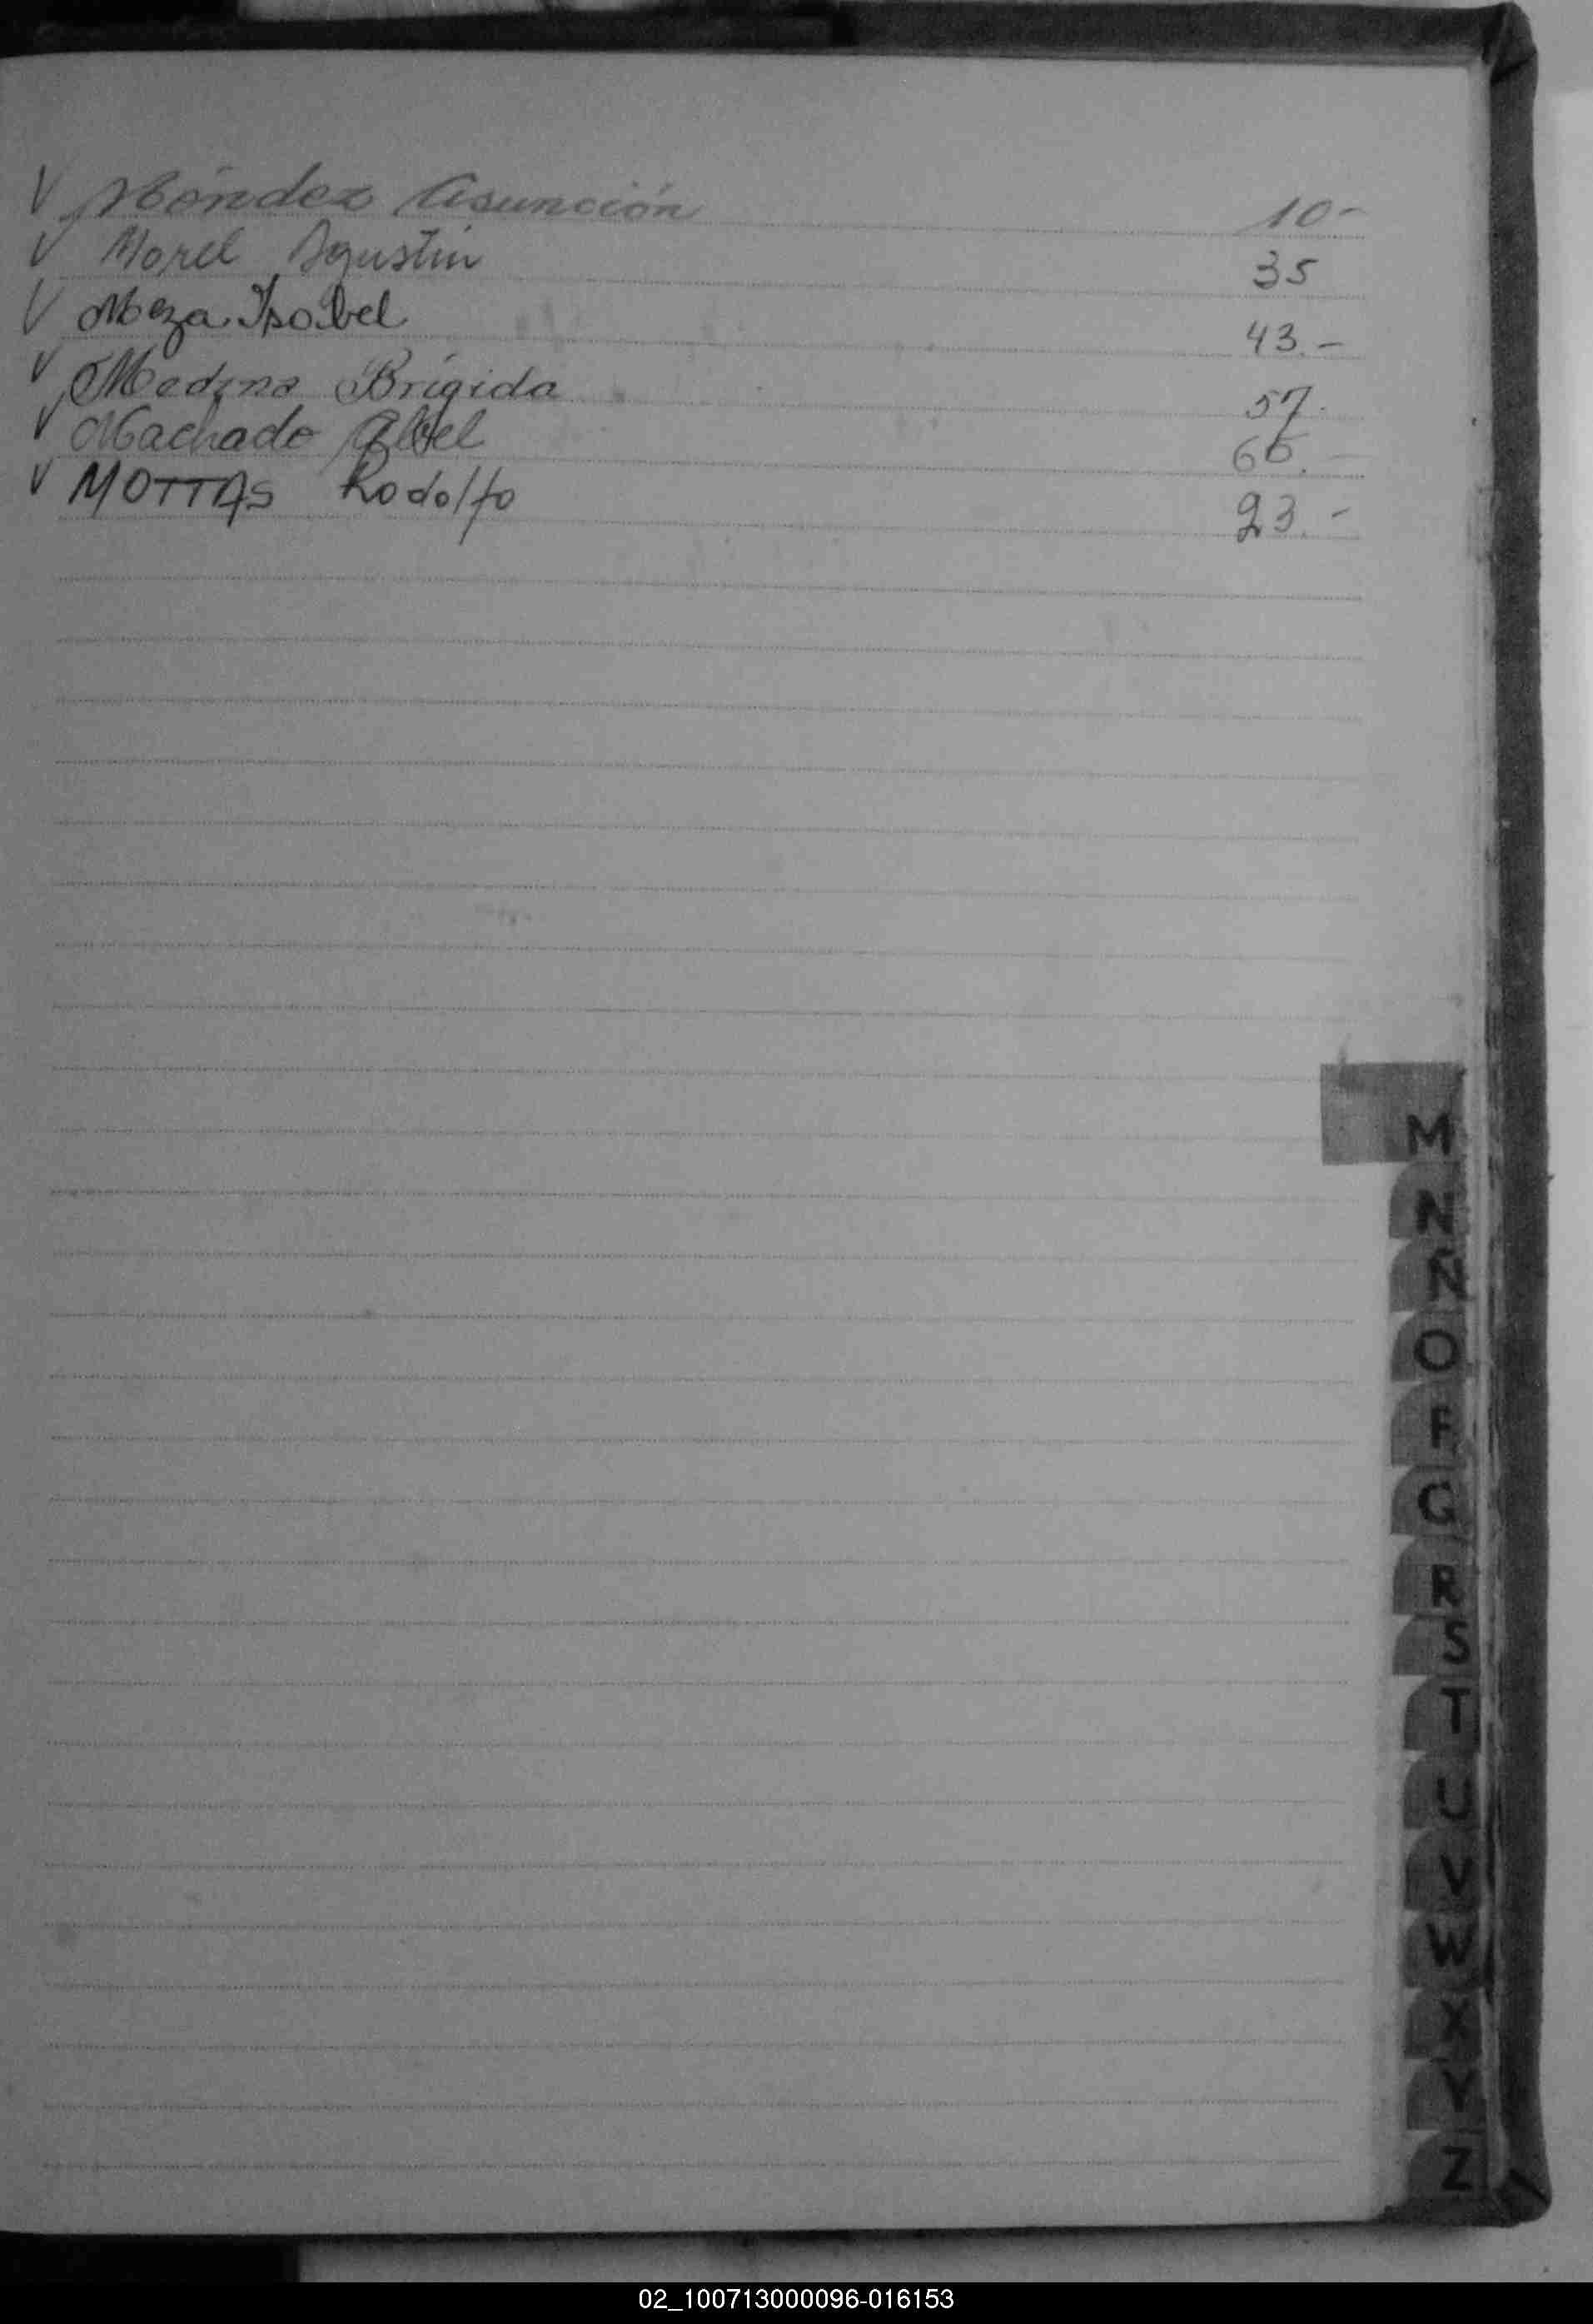 V Méndez Asunción 10-
V Morel Agustin 35
V Meza Isabel 43.-
V Medina Brígida 57.
V Machado Abel 66.-
V MOTTAS Rodolfo 23.-
M
N
N
O
P
Q
R
S
T
U
V
W
X
Y
Z
02_100713000096-016153